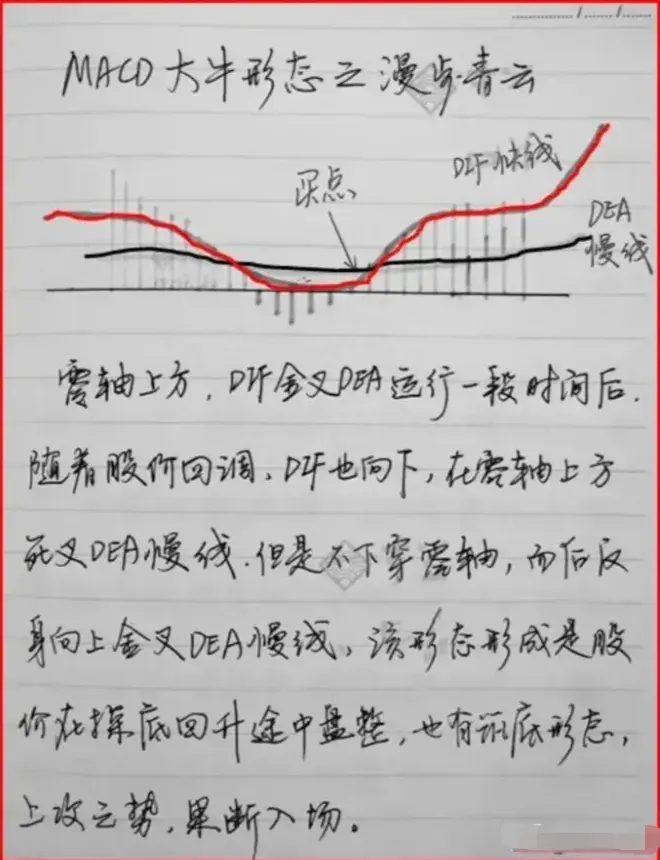 MACD大牛形态之漫步青云
DIF快线
买点
DEA
慢线
零轴上方，DIF金叉DEA运行一段时间后．
随着股价回调、DIF也向下，在零轴上方
死叉DEA慢线．但是不下穿零轴，而后反
身向上金叉DEA慢线、该形态形成是股
价在探底回升途中盘整，也有筑底形态，
上攻之势，果断入场。